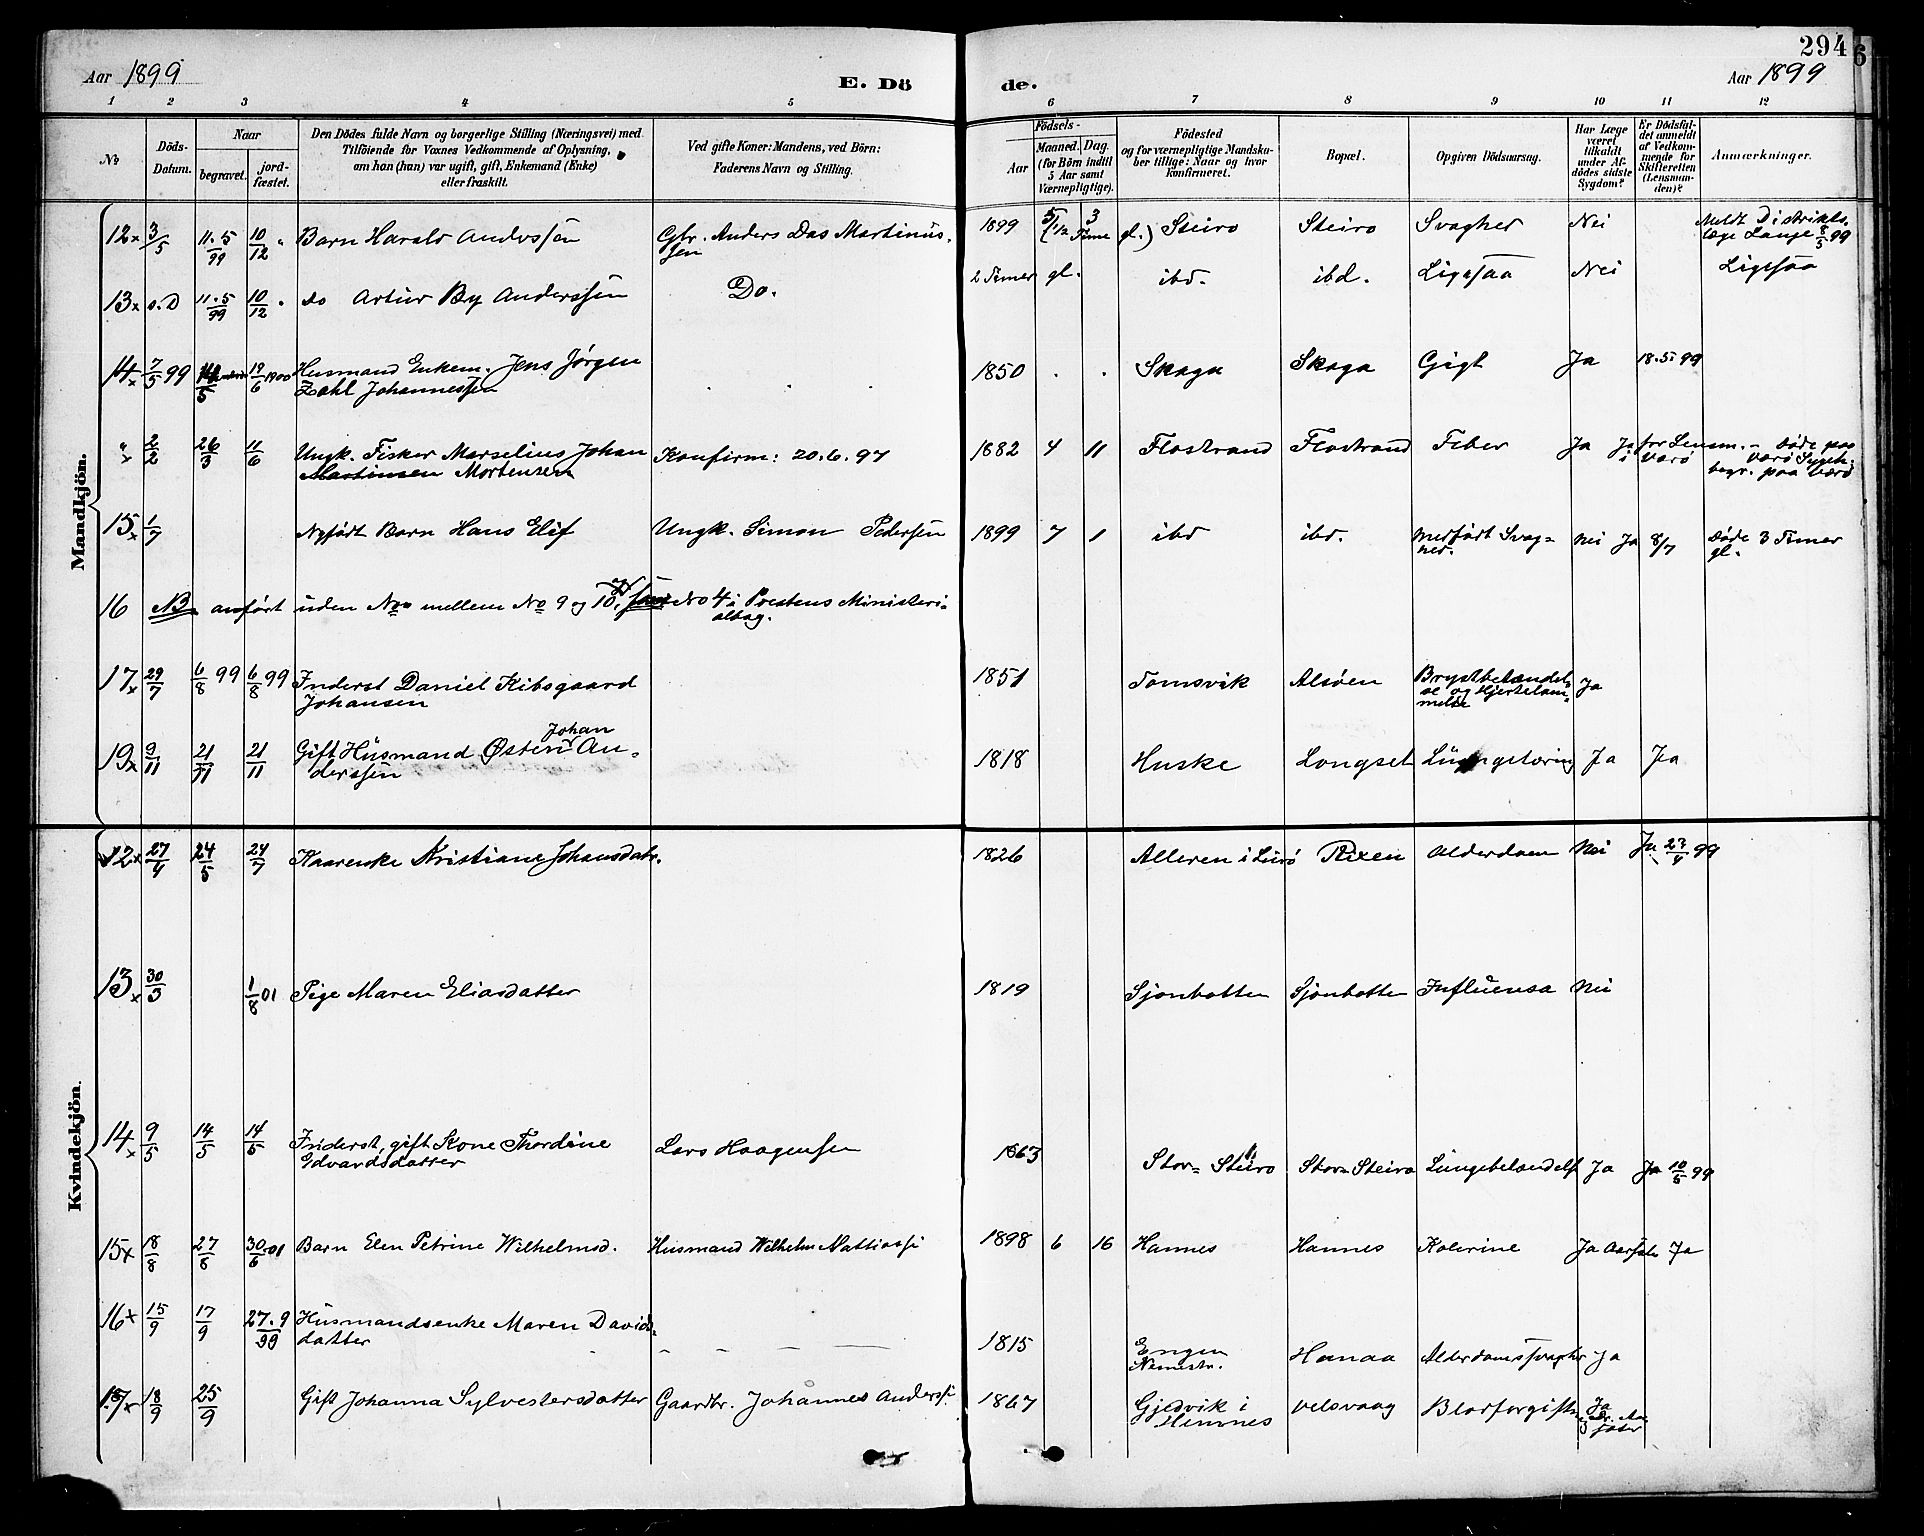 294
6
Aar 1899
E. Dö
de.
Aar 1899
1 2 3 4 5 6 7 8 9 10 11 12
No
Döds-Datum.
Naar
begravet.
jord-fæstet.
Den Dödes fulde Navn og borgerlige Stilling (Næringsvei) med
Tilföiende for Voxnes Vedkommende af Oplysning,
om han (hun) var ugift, gift, Enkemand (Enke)
eller fraskilt.
Ved gifte Koner: Mandens, ved Börn:
Faderens Navn og Stilling.
Födsels-
Aar
Maaned. Dag.
(for Börn indtil
5 Aar samt
Værnepligtige).
Födested
og for værnepligtige Mandska-
ber tillige: Naar og hvor
konfirmeret.
Bopæl.
Opgiven Dödsaarsag.
Har Læge
været
tilkaldt
under Af-
dödes sidste
Sygdom?
Er Dödsfal-
det anmeldt
af Vedkom-
mende for
Skifteretten
(Lensman-
den)?
Anmærkninger.
Mandkjön.
12x 3/5 11.5/99 10/12 Barn Harald Anderssen Gbr. Anders Das Martinus-
sen 1899 5/12 3 Time gl.) Steiro Steiro Svaghed Nei Meldt Distrikts-
læge Lange 8/5 99
13x s.D 11.5/99 10/12 do Artur By Anderssen Do. 2 Timer gl. ibd. ibd. Ligesaa Nei Ligesaa
14x 7/5 99 19/6 1900 Husmand Enkem. Jens Jørgen
Zahl Johannessen 1850 Skaga Skaga Gigt Ja 18.5.99
" x 2/2 26/3 11/6 Ungk. Fisker Marselius Johan
Martinsen Mortensen Konfirm: 20.6.97 1882 4 11 Flostrand Flostrand Feber Ja Ja for Lensm. i Værö - døde paa
Værö Sygeh.
begr. paa Værö
15x 1/7 Nyfödt Barn Hans Elif Ungk. Simon Pedersen 1899 7 1 ibd ibd. Medfödt Svag-
hed. Nei Ja 8/7 Døde 3 Timer
gl.
16 NB anført uden No mellem No 9 og 10. No 4 i Prestens Ministeri-
albog.
17x 29/7 6/8 99 6/8 99 Inderst Daniel Kibsgaard
Johansen 1851 Tomsvik Alsöen Brystbetændel-
se og Hjertelam-
melse Ja
19x 9/11 21/11 21/11 Gift Husmand Østen Johan An-
derssen 1818 Huske Longset Lungetæring Ja Ja
Kvindekjön.
12x 27/4 24/5 24/7 Kaarenke Kristiane Johansdatr. 1826 Alleren i Lurö Rixen Alderdom Nei Ja 27/4 99
13x 30/3 1/8 01 Pige Maren Eliasdatter 1819 Sjonbotten Sjonbotten Influensa Nei
14x 9/5 14/5 14/5 Inderst, gift Kone Thordine
Edvardsdatter Lars Haagensen 1863 Stor-Steiro Stor-Steiro Lungebetændels Ja Ja 10/5 99
15x 18/8 27/8 30/6 01 Barn Elen Petrine Wilhelmsd. Husmand Wilhelm Mattiass. 1898 6 16 Hannes Hannes Kolerine Ja Ja
16x 15/9 17/9 27.9/99 Husmandsenke Maren Davids-
datter 1815 Engen
Nemstn. Hanaa Alderdomssvaghed Ja
17x 18/9 25/9 Gift Johanna Sylvestersdatter Gaardbr. Johannes Anderss. 1867 Gjedvik i
Hemnes Velsvaag Blodforgiftn. Ja